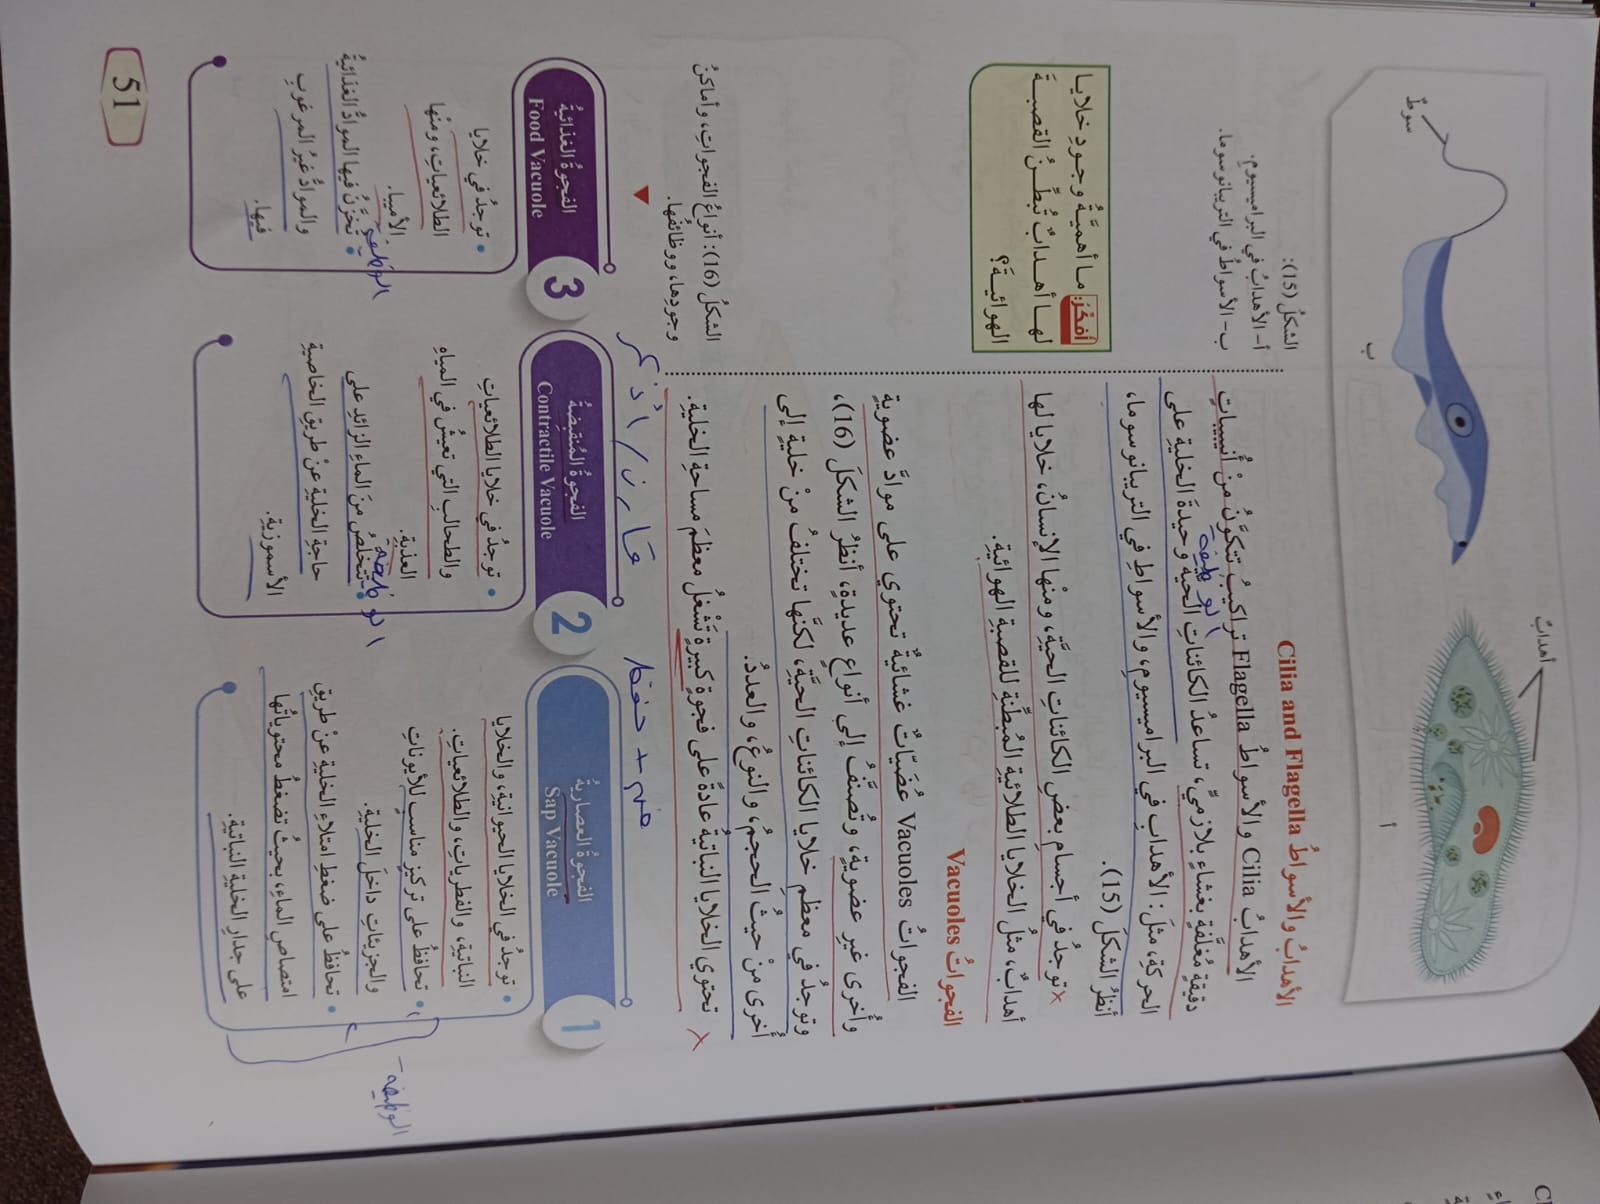 أهداب
سوط
أ
ب
الشكل (15):
أ- الأهداب في البراميسيوم.
ب- الأسواط في التريبانوسوما.
الأهداب والأسواط Cilia and Flagella
الأهداب Cilia والأسواط Flagella تراكيب تتكون من أنيبيبات
دقيقة مغلفة بغشاء بلازمي، تساعد الكائنات الحية وحيدة الخلية على
الوظيفة
الحركة، مثل: الأهداب في البراميسيوم، والأسواط في التريبانوسوما،
أنظر الشكل (15).
توجد في أجسام بعض الكائنات الحية، ومنها الإنسان، خلايا لها
أهداب، مثل الخلايا الطلائية المبطنة للقصبة الهوائية.
أفكر: ما أهمية وجود خلايا
لها أهداب تبطن القصبة
الهوائية؟
الفجوات Vacuoles
الفجوات Vacuoles عضيات غشائية تحتوي على مواد عضوية
وأخرى غير عضوية، وتصنف إلى أنواع عديدة، أنظر الشكل (16)،
وتوجد في معظم خلايا الكائنات الحية، لكنها تختلف من خلية إلى
أخرى من حيث الحجم، والنوع، والعدد.
تحتوي الخلايا النباتية عادة على فجوة كبيرة تشغل معظم مساحة الخلية.
الشكل (16): أنواع الفجوات، وأماكن
وجودها، ووظائفها.
قارن / اذكر
فهم + حفظ
1
الفجوة العصارية
Sap Vacuole
• توجد في الخلايا الحيوانية، والخلايا
النباتية، والفطريات، والطلائعيات.
• تحافظ على تركيز مناسب للأيونات
والجزيئات داخل الخلية.
• تحافظ على ضغط امتلاء الخلية عن طريق
امتصاص الماء، بحيث تضغط محتوياتها
على جدار الخلية النباتية.
الوظيفة
2
الفجوة المنقبضة
Contractile Vacuole
• توجد في خلايا الطلائعيات
والطحالب التي تعيش في المياه
العذبة.
الوظيفة
• تتخلص من الماء الزائد على
حاجة الخلية عن طريق الخاصية
الأسموزية.
3
الفجوة الغذائية
Food Vacuole
• توجد في خلايا
الطلائعيات، ومنها
الأميبا.
الوظيفة
• تخزن فيها المواد الغذائية
والمواد غير المرغوب
فيها.
51